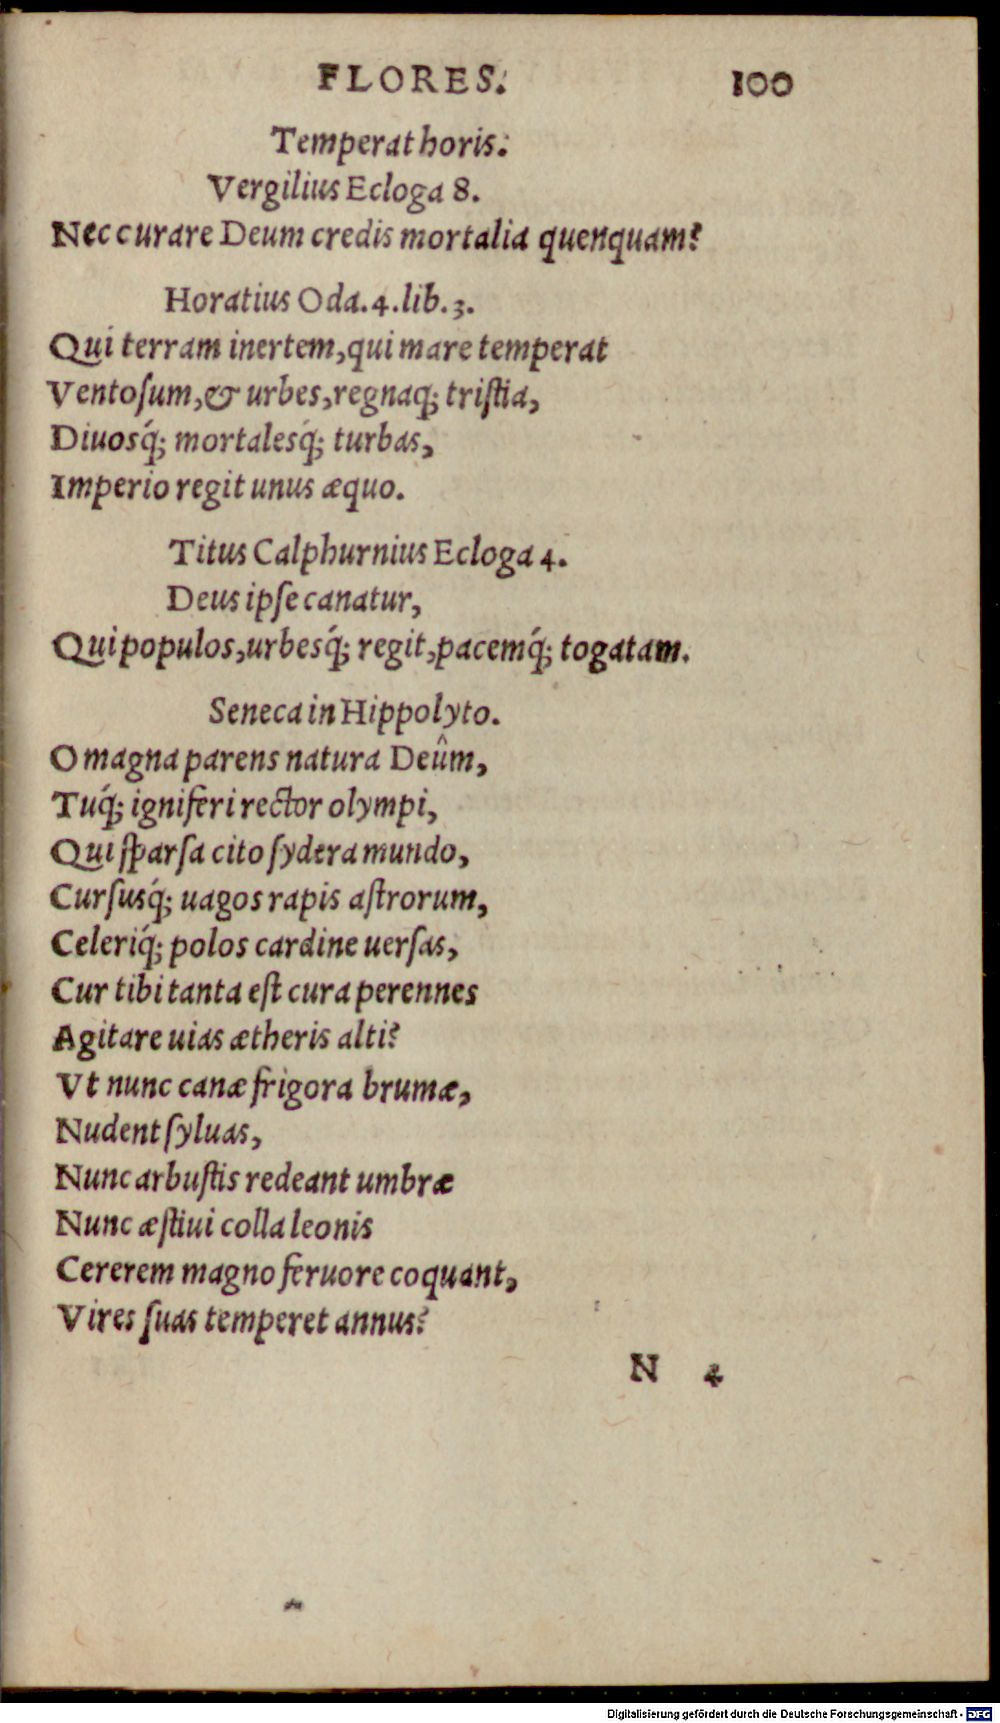 FLORES. 100
Temperat horis.
Vergilius Ecloga 8.
Nec curare Deum credis mortalia quenquam?
Horatius Oda.4.lib.3.
Qui terram inertem,qui mare temperat
Ventoſum,& urbes,regnaq; triſtia,
Diuosq́; mortalesq́; turbas,
Imperio regit unus æquo.
Titus Calphurnius Ecloga 4.
Deus ipſe canatur,
Qui populos,urbesq́; regit,pacemq́; togatam.
Seneca in Hippolyto.
O magna parens natura Deûm,
Tuq́; igniferi rector olympi,
Qui ſparſa cito ſydera mundo,
Curſusq́; uagos rapis aſtrorum,
Celeriq́; polos cardine uerſas,
Cur tibi tanta eſt cura perennes
Agitare uias ætheris alti?
Vt nunc canæ frigora brumæ,
Nudent ſyluas,
Nunc arbuſtis redeant umbræ
Nunc æſtiui colla leonis
Cererem magno feruore coquant,
Vires ſuas temperet annus?
N 4
Digitalisierung gefördert durch die Deutsche Forschungsgemeinschaft - DFG